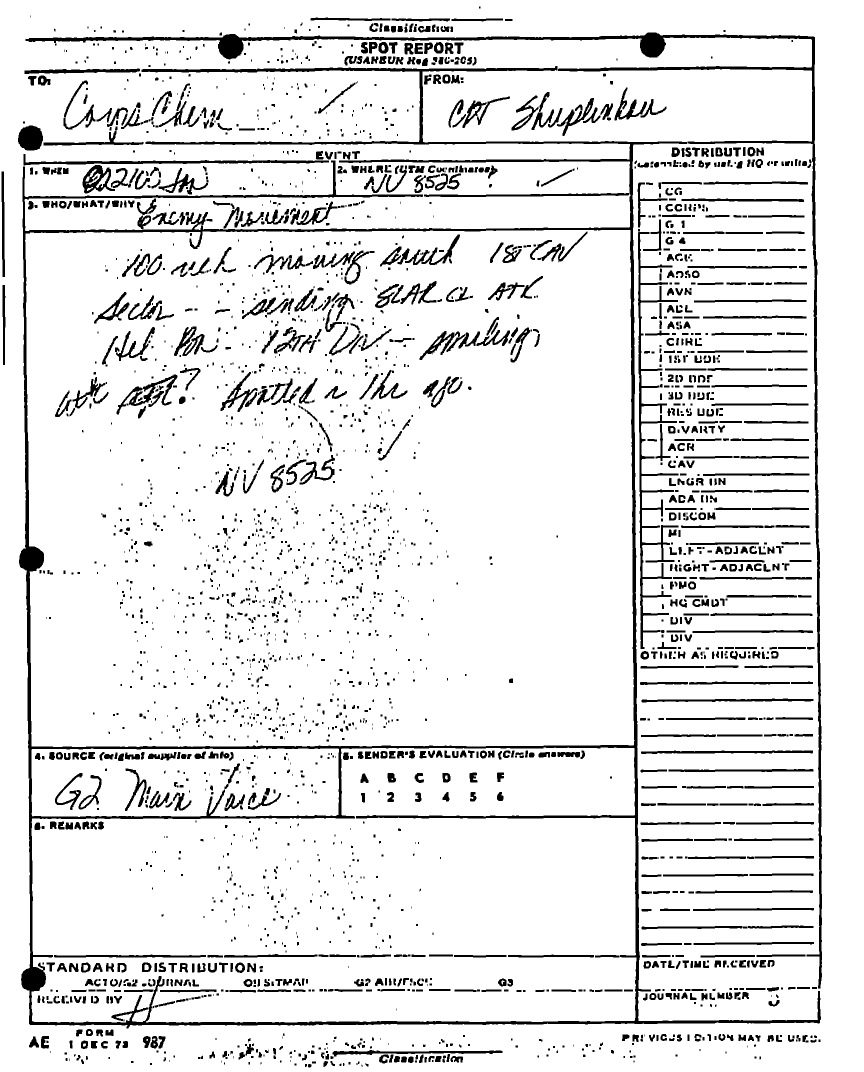 Classification
SPOT REPORT
(USAREUR Reg 380-205)
TO:
Corps Chem
FROM:
CPT
EVENT
1. WHEN
022100 Jan
2. WHERE (UTM Coordinates)
NV 8525
3. WHO/WHAT/WHY
Enemy Movement
100 veh moving south 1ST CAV
Sector - - sending SLAR CL ATK
Hel Bn - 12TH DIV - spoiling
atk ? Spotted ~ 1hr ago.
NV 8525
4. SOURCE (original supplier of info)
G2 Main Voice
5. SENDER'S EVALUATION (Circle answers)
A B C D E F
1 2 3 4 5 6
6. REMARKS
DISTRIBUTION
(determined by using HQ or units)
CG
CORPS
G 1
G 4
ADSO
AVN
ASA
1ST BDE
2D BDE
3D BDE
RES BDE
DIVARTY
ACR
CAV
ENGR BN
ADA BN
DISCOM
MI
LEFT-ADJACENT
RIGHT-ADJACENT
PMO
HQ CMDT
DIV
DIV
OTHER AS REQUIRED
STANDARD DISTRIBUTION:
ACTO/G2 JOURNAL OB SITMAP G2 AIR/FSCC G3
RECEIVED BY
DATE/TIME RECEIVED
JOURNAL NUMBER
AE FORM 1 DEC 73 987
PREVIOUS EDITION MAY BE USED.
Classification